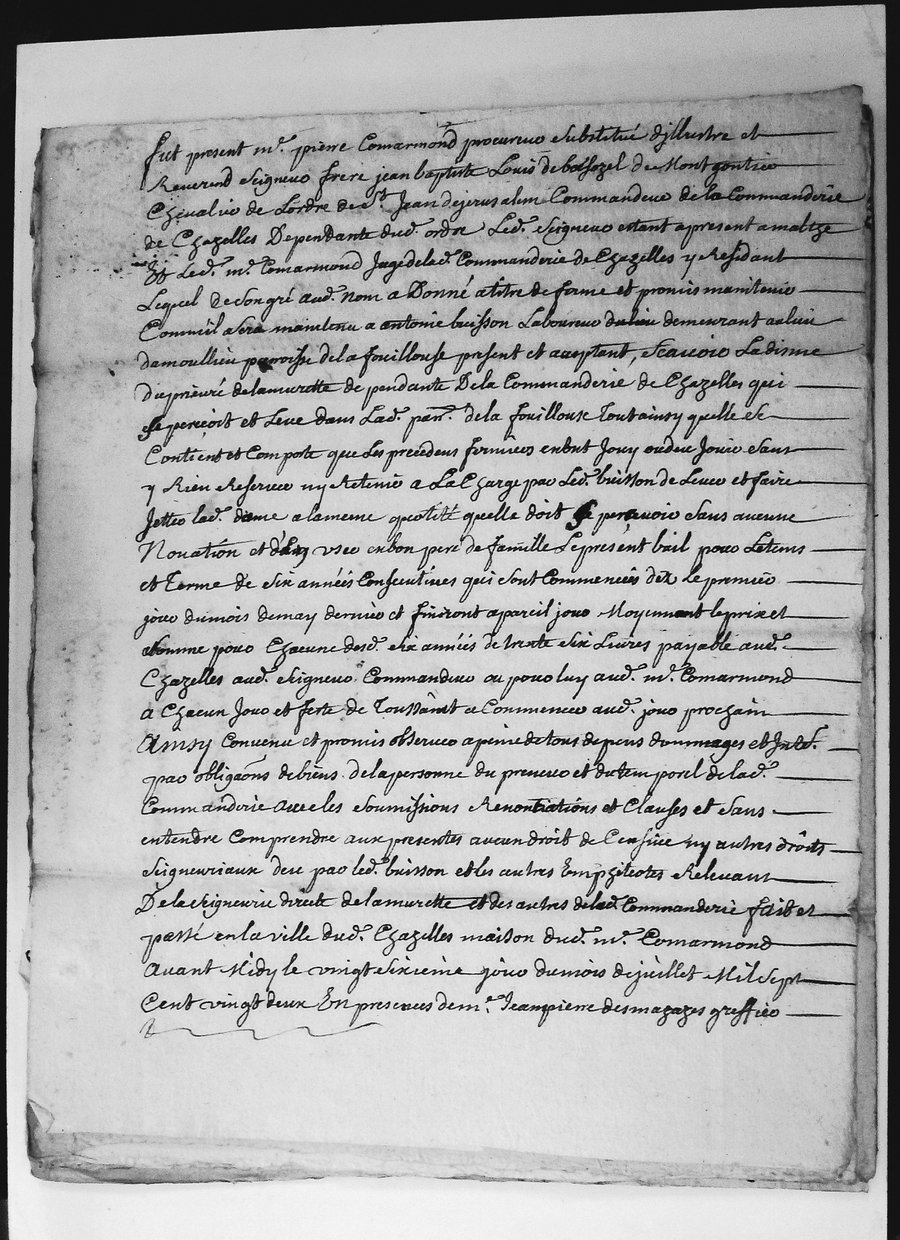 fut present mr. pierre Comarmond procureur substitué dillustre et
Reverend seigneur frere jean baptiste Louis de bossozel de Montgontier
Chevalier de Lordre de St. Jean de jerusalem Commandeur de la Commanderie
de Chazelles Dependante dud. ordre Led. seigneur estant apresent a malthe
Et Led. mr. Comarmond Juge de lad. Commanderie de Chazelles y Residant
Lequel de son gré aud. nom a Donné a titre de ferme et promis maintenir
Comme il sera maintenu a antoine buisson Laboureur du lieu demeurant au lieu
damoullieu paroisse de la fouillouse present et acceptant, scavoir La disme
du prieuré de la murette dependante De la Commanderie de Chazelles qui
se percoit et Leve dans Lad. parr. de la fouillouse tout ainsy quelle se
Contient et Comporte que Les precedens fermiers en ont Jouy ou deu Jouir sans
y Rien Reserver ny Retenir a La Charge par Led. buisson de Lever et faire
Jetter lad. dime a la meme quotité quelle doit se percevoir sans aucune
Novation et d'en user en bon pere de famille Le present bail pour Le tems
et terme de six années Consecutives qui sont Commencées dez Le premier
jour du mois de may dernier et finiront a pareil jour Moyennant le prix et
somme pour Chacune desd. six années de trente six Livres payable aud.
Chazelles aud. seigneur Commandeur ou pour luy aud. mr. Comarmond
a Chacun Jour et feste de Toussaint a Commencer aud. jour prochain
Ainsy Convenu et promis observer a peine de tous depens dommages et Inte.
par obligaons de biens de la personne du preneur et du temporel de lad.
Commanderie avec les soumissions Renontiations et Clauses et sans
entendre Comprendre aux presentes aucun droit de Censive ny autres droits
seigneuriaux deu par led. buisson et les autres Emphiteotes Relevant
De la seigneurie directe de la murette et des autres de lad. Commanderie fait et
passé en la ville dud. Chazelles maison dud. mr. Comarmond
avant Midy le vingt sixieme jour du mois de juillet Mil sept
Cent vingt deux En presences de mr. Jean pierre desmazazes greffier